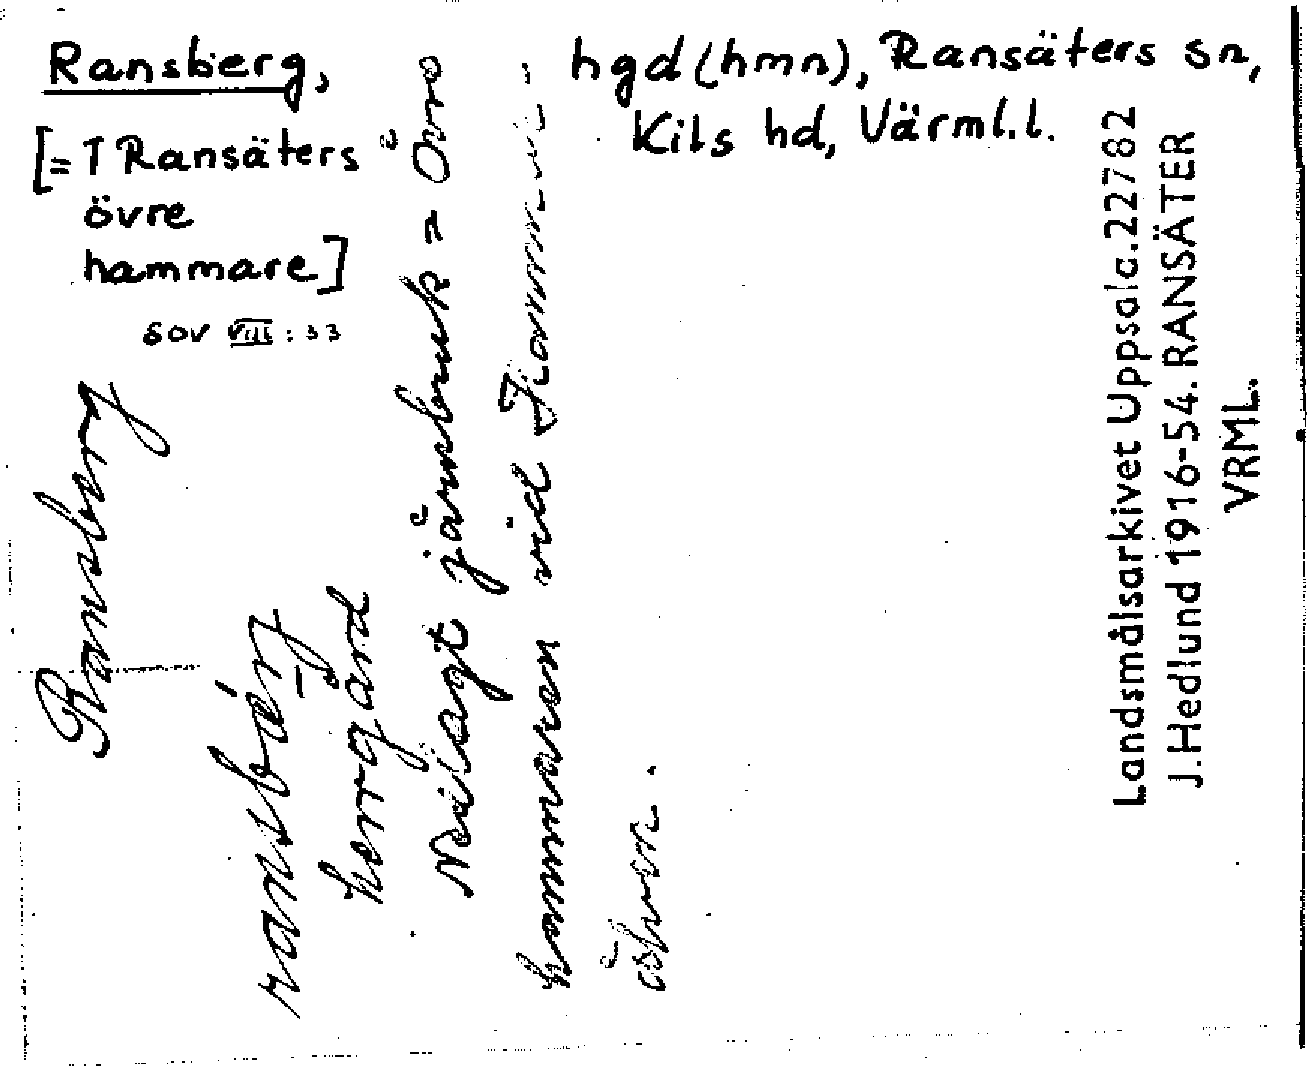 Ransberg, hgd (hmn), Ransäters sn,
Kils hd, Värml. l.
[= ↑ Ransäters
övre
hammare]
SOV VIII : 33
Ransberg
herrgård
Nedlagt järnbruk = Övre
hammaren vid
Landsmålsarkivet Uppsala. 22782
J. Hedlund 1916-54. RANSÄTER
VRML.